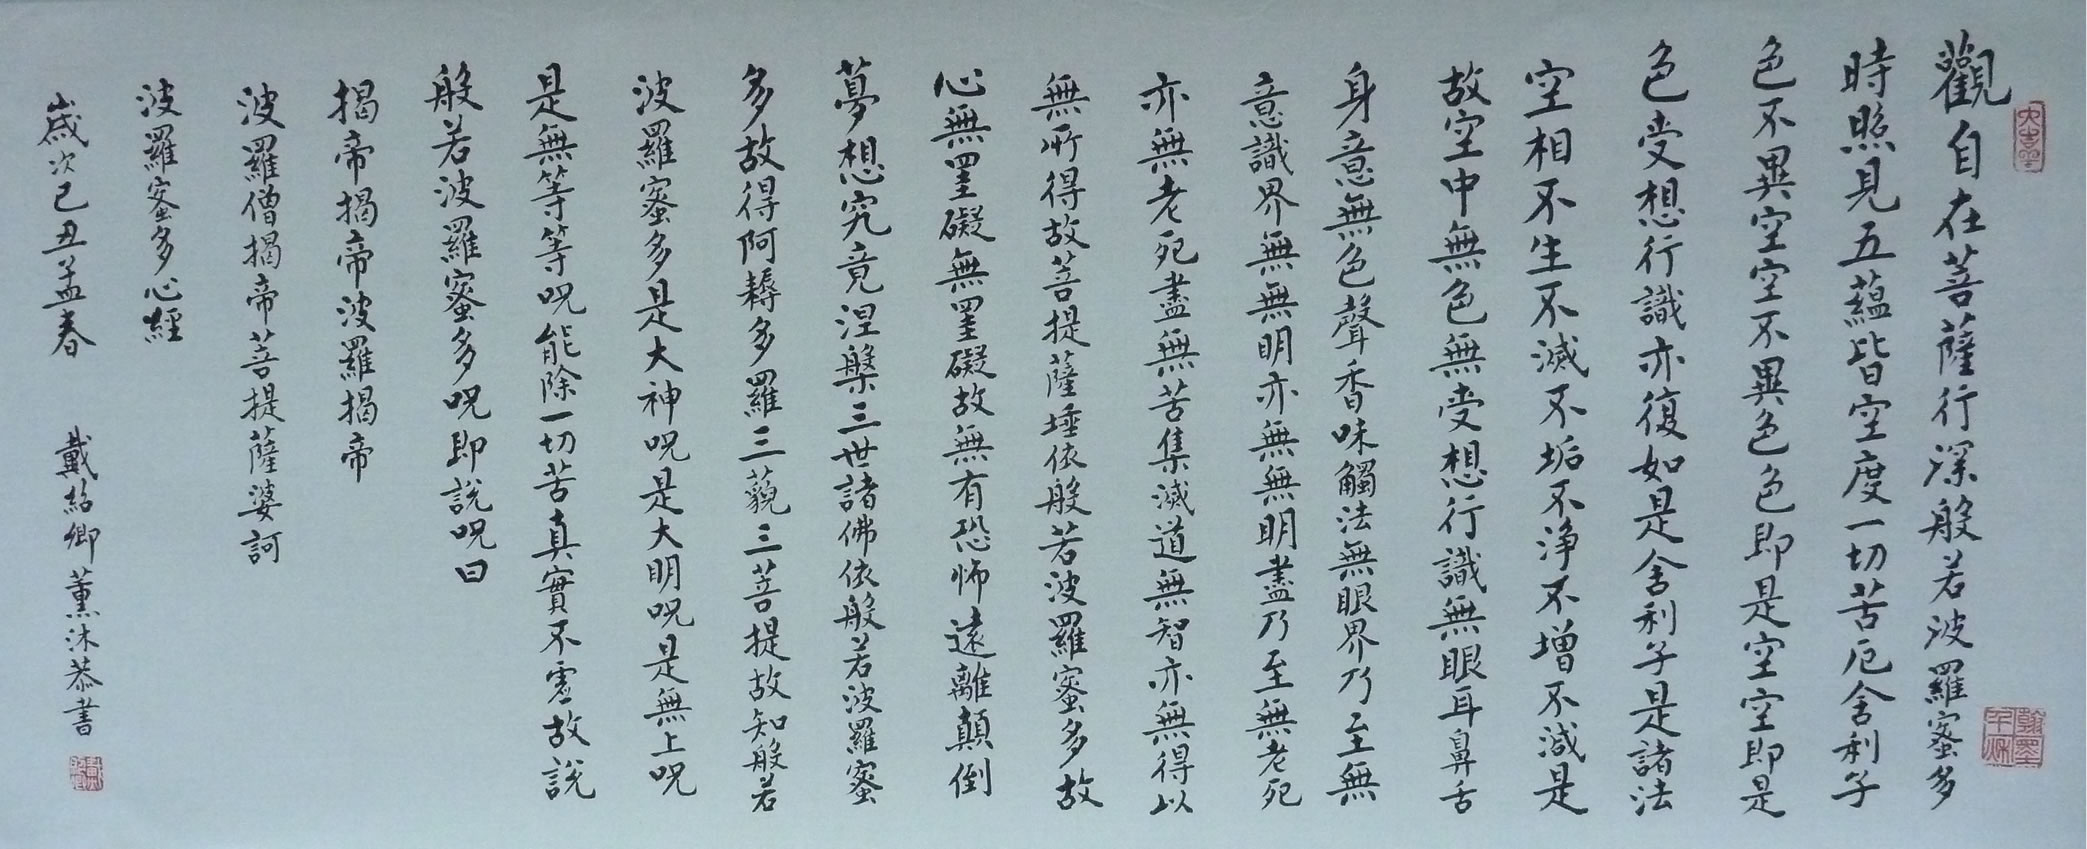 觀自在菩薩行深般若波羅蜜多
時照見五蘊皆空度一切苦厄舍利子
色不異空空不異色色即是空空即是
色受想行識亦復如是舍利子是諸法
空相不生不滅不垢不淨不增不減是
故空中無色無受想行識無眼耳鼻舌
身意無色聲香味觸法無眼界乃至無
意識界無無明亦無無明盡乃至無老死
亦無老死盡無苦集滅道無智亦無得以
無所得故菩提薩埵依般若波羅蜜多故
心無罣礙無罣礙故無有恐怖遠離顛倒
夢想究竟涅槃三世諸佛依般若波羅蜜
多故得阿耨多羅三藐三菩提故知般若
波羅蜜多是大神咒是大明咒是無上咒
是無等等咒能除一切苦真實不虛故說
般若波羅蜜多咒即說咒曰
揭帝揭帝波羅揭帝
波羅僧揭帝菩提薩婆訶
波羅蜜多心經
歲次己丑孟春 戴紹卿薰沐恭書